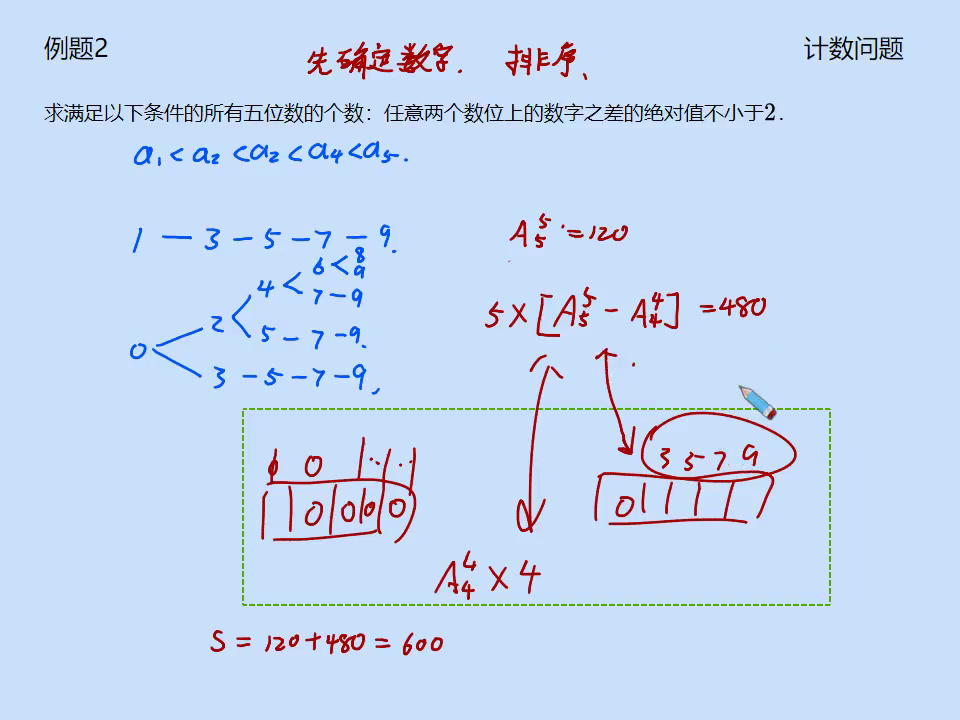 例题2
计数问题
先确定数字. 排序、
求满足以下条件的所有五位数的个数：任意两个数位上的数字之差的绝对值不小于2．
a₁ < a₂ < a₂ < a₄ < a₅.
1 — 3 — 5 — 7 — 9.
A₅⁵ = 120
6 < 8 9
4 <
7 — 9
2 <
5 — 7 — 9.
0 <
3 — 5 — 7 — 9,
5 × [A₅⁵ − A₄⁴] = 480
0 0
0 0 0 0
3 5 7 9
0
A₄⁴ × 4
S = 120 + 480 = 600